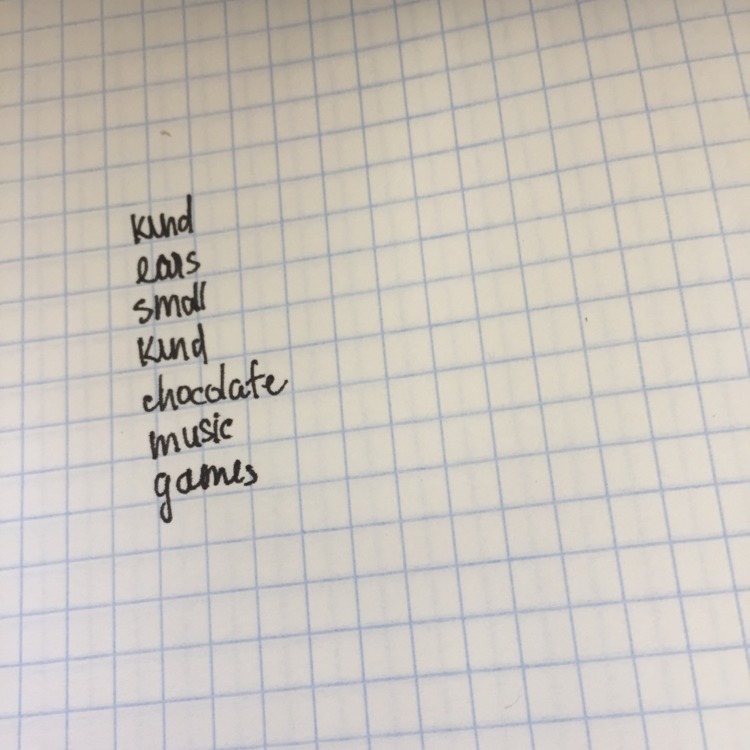 kind
ears
small
kind
chocolate
music
games